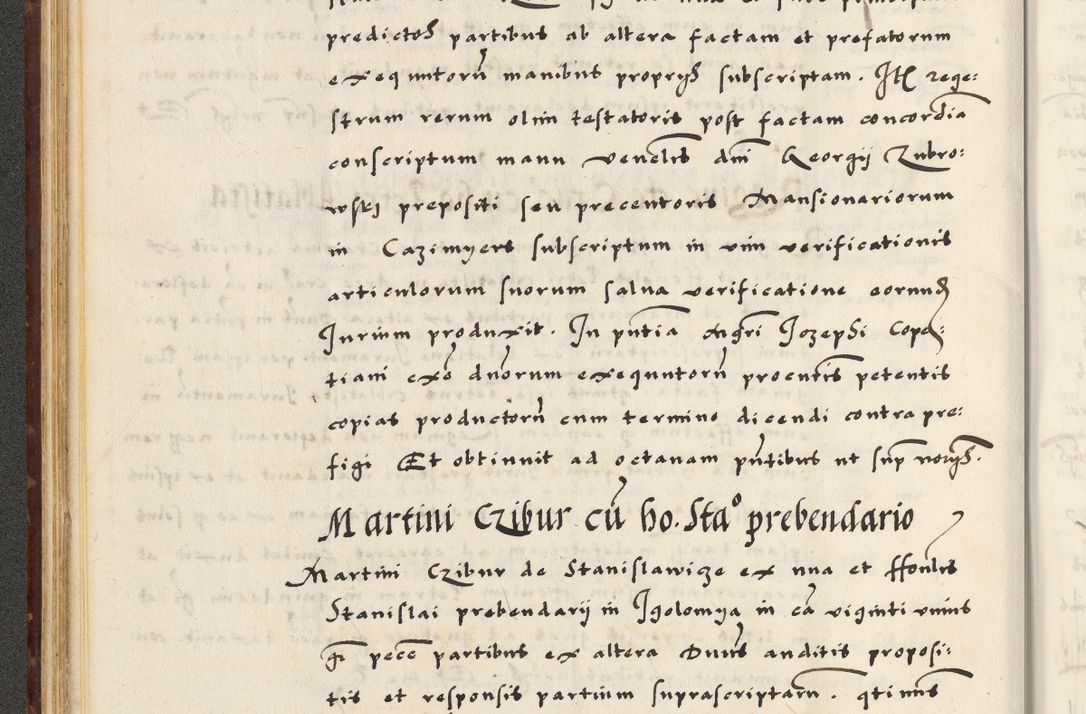 predictos partibus ab altera factam et prefatorum
exequutorū manibus proprys subscriptam. Itē rege:
strum rerum olim testatoris post factam concordia
conscriptum manu venelis dni Georgij Zubro:
wskj prepositi seu precentoris Mansionariorum
in Cazimyers subscriptum in vim verificationis
articulorum suorum salua verificatione eorund
Jurium produxit. In pntia mgri Jozephi Cope:
tiani exo duorum exequutorū procntis petentis
copias productorū cum termino dicendi contra pre:
figi Et obtinuit ad octauam pntibus ut sup norys.
Martini Czibur cū ho. Stao prebendario
Martini Czibur de Stanislawicze ex una et ffonlis
Stanislai prebendarij in Jgolomya in cā viginti unius
gr pece partibus ex altera Dnus auditis proposi:
tis et responsis partium suprascriptarū. qtimus